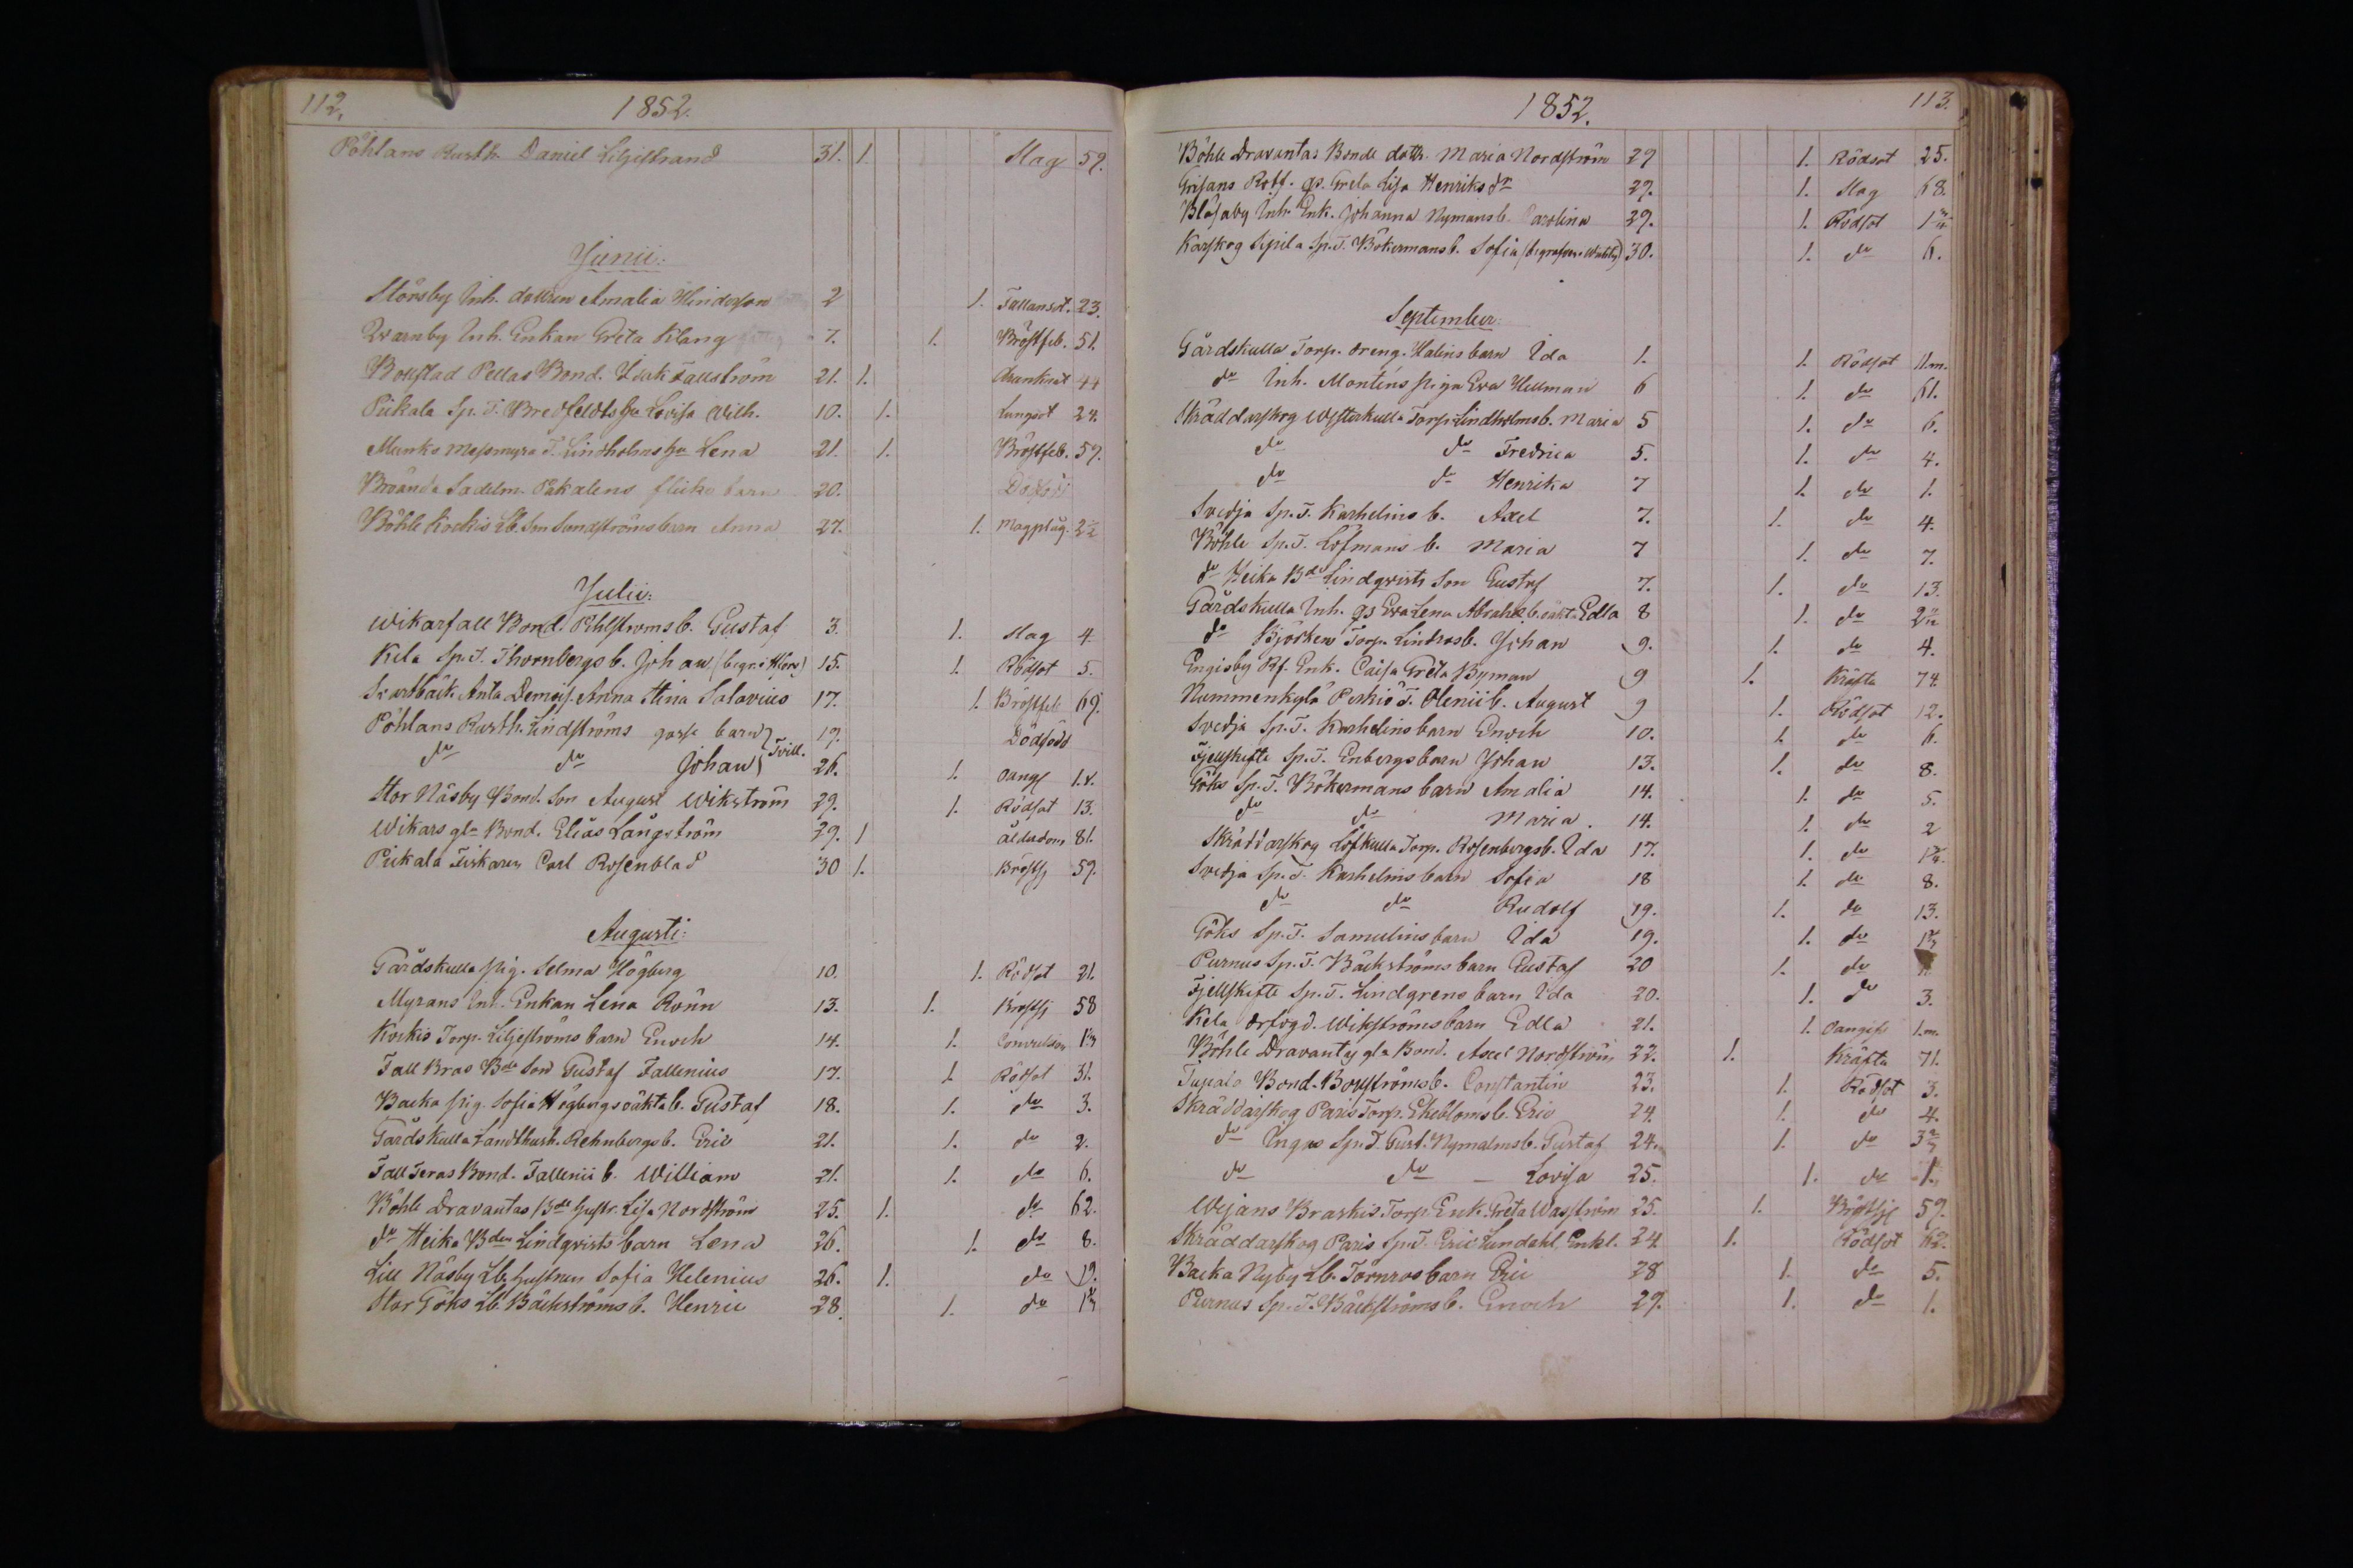 112.
1852.
Pöhlans Rusth. Daniel Liljestrand 31. 1. Slag 59.
Junii:
Störsby Inh. dottren Amalia Hinderson 2 1. Fallandst. 23.
Qvarnby Inh. Enkan Greta Klang 7. 1. Bröstfeb. 51.
Bollstad Pellas Bond. Isak Fallström 21. 1. 44
Pikala Sp. T. Bredfeldts hu Lovisa Wilh. 10. 1. Lungsot 24.
Munks Mossmyra T. Lindholms hu Lena 21. 1. Bröstfeb. 59.
Broända Sadelm. Pakalens flicke barn 20. Dödföd
Böhle Kockis Lb. Son Sundströms barn Anna 27. 1. Magplåg. 2
Julii:
Wikarfall Bond. Pihlströms b. Gustaf 3. 1. Slag 4
Kela Sp. T. Thornbergs b. Johan (begr. i ) 15. 1. Rödsot 5.
Svartbäck Anta Demois. Anna Stina Salavius 17. 1. Bröstfeb 69.
Pöhlans Rusth. Lindströms gosse barn } 19. Dödfödd
do do Johan } Tvill. 26. 1. oangf 1.v.
Stor Näsby Bond. Son August Wikström 29. 1. Rödsot 13.
Wikars gla Bond. Elias Långström 29. 1 ålderdom 81.
Pickala Fiskaren Carl Rosenblad 30 1. Bröstsj 59.
Augusti:
Gårdskulla pig. Selma Högberg 10. 1. Rödsot 21.
Myrans Inh. Enkan Lena Rönn 13. 1. Bröstsj 58
Kockis Torp. Liljeströms barn Enoch 14. 1. Convulsion
Fall Bras Bde Son Gustaf Fallenius 17. 1 Rödsot 31.
Backa pig. Sofia Högbergs oäkta b. Gustaf 18. 1. do 3.
Gårdskulla Landthush. Rehnbergs b. Eric 21. 1. do 2.
Fall Jeras Bond. Fallenii b. William 21. 1. do 6.
Böhle Dravantas Bde hustr. Lisa Nordström 25. 1. do 62.
do Heika Bden Lindqvists barn Lena 26. 1. do 8.
Lill Näsby Lb. hustrun Sofia Helenius 26. 1. do 19.
Stor Göks Lb. Bäckströms b. Henric 28. 1. do
1852.
113.
Böhle Dravantas Bonde dottr. Maria Nordström 29 1. Rödsot 25.
Grisans Rotf. qs. Greta Lisa Henriksdr 29. 1. Slag 68.
Blåsaby Inh. Enk. Johanna Nymans b. Carolina 29. 1. Rödsot
Karskog Sipila Sp. T. Bökermans b. Sofia (begrafven i ) 30. 1. do 6.
September:
Gårdskulla Torp. dreng. Halins barn Ida 1. 1. Rödsot 11.m.
do Inh. Monténs piga Eva Hellman 6 1. do 61.
Skräddarskog Westerkulla Torp. Lindholms b. Maria 5 1. do 6.
do do Fredrica 5. 1. do 4.
do do Henrika 7 1. do 1.
Svedja Sp. T. Karhelins b. Axel 7. 1. do 4.
Böhle Sp. T. Löfmans b. Maria 7 1. do 7.
do Heika Bde Lindqvists Son Gustaf 7. 1. do 13.
Gårdskulla Inh. qs Eva Lena Abrahs. b. oäkta Edla 8 1. do
do Björken Torp. Lindroos b. Johan 9. 1. do 4.
Engisby Rf. Enk. Caisa Greta Byman 9 1. Kräfta 74.
Nummenkylä Piskis T. Olenii b. August 9 1. Rödsot 12.
Svedja Sp. T. Karhelins barn Enoch 10. 1. do 6.
Fjellskifte Sp. T. Enbergs barn Johan 13. 1. do 8.
Göks Sp. T. Bökermans barn Amalia 14. 1. do 5.
do do Maria. 14. 1. do 2
Skräddarskog Löfkulla Torp. Rosenbergs b. Ida 17. 1. do
Svedja Sp. T. Karhelins barn Sofia 18 1. do 8.
do do Rudolf 19. 1. do 13.
Göks Sp. T. Samulins barn Ida 19. 1. do
Purnus Sp. T. Bäckströms barn Gustaf 20 1. do
Fjellskifte Sp. T. Lindgrens barn Ida 20. 1. do 3.
Kela Wikströms barn Edla 21. 1. oangif 1.m.
Böhle Dravantas gla Bond. Axel Nordström 22. 1. Kräfta 71.
Tupala Bond. Boxströms b. Constantin 23. 1. Rödsot 3.
Skräddarskog Paris Torp. Ekebloms b. Eric 24. 1. do 4.
do Ingas Sp. T. Gust. Nymalms b. Gustaf 24. 1. do
do do – Lovisa 25. 1. do 1.
Wejans Braskis Torp. Enk. Greta Wasström 25. 1. Bröstsj 59.
Skräddarskog Paris Sp. T. Eric Lundahl, Enkl. 24 1. Rödsot 62.
Backa Nyby Lb. Törnroos barn Eric 28 1. do 5.
Purnus Sp. T. Bäckströms b. Enoch 29. 1. do 1.